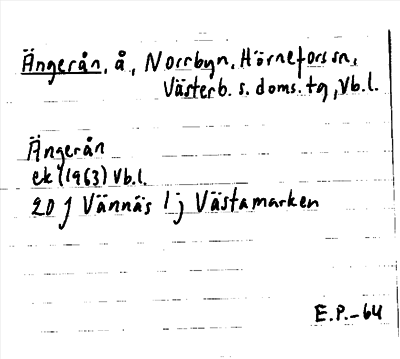 Ängerån, å, Norrbyn, Hörnefors sn,
Västerb. s. doms. tg, Vb. l.
Ängerån
ek (1963) Vb. l.
20 J Vännäs l j Västamarken
E.P.-64